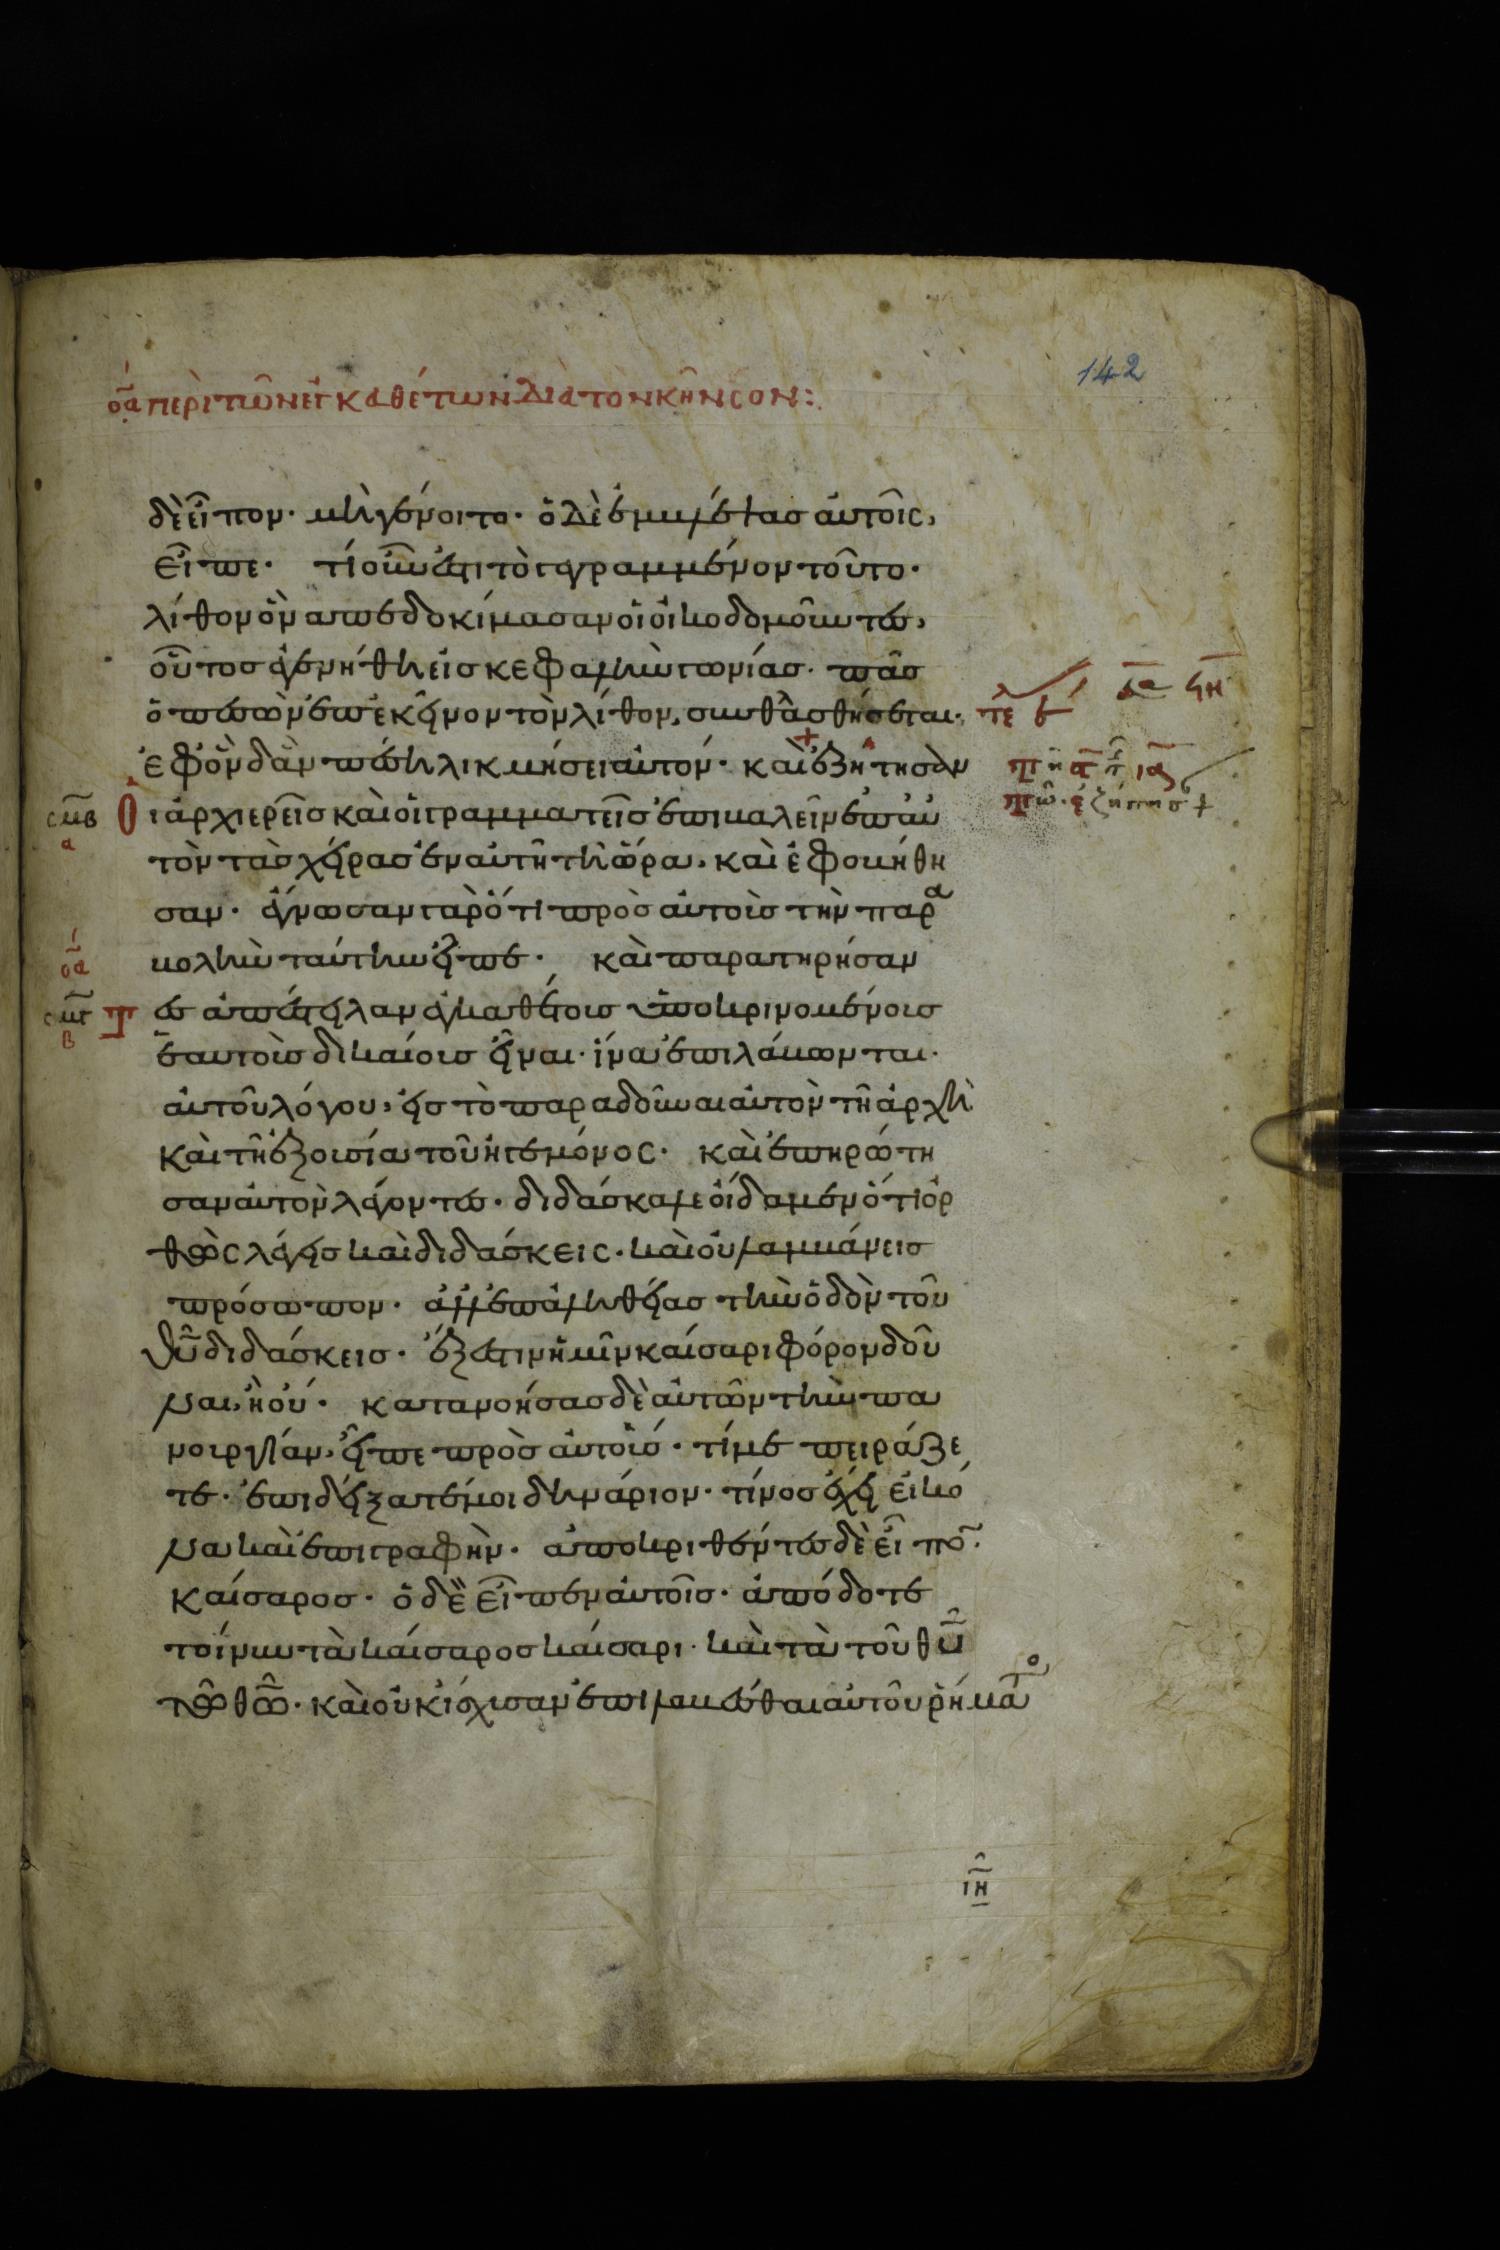 142
οα περὶ τῶν ἐγκαθέτων διὰ τὸν κῆνσον:
δὲ εἶπον· μὴ γένοιτο· ὁ δὲ ἐμβλέψας αὐτοῖς,
εἶπε· τί οὖν ἐστι τὸ γεγραμμένον τοῦτο·
λίθον ὃν ἀπεδοκίμασαν οἱ οἰκοδομοῦντες,
οὗτος ἐγενήθη εἰς κεφαλὴν γωνίας· πᾶς
ὁ πεσὼν ἐπ' ἐκεῖνον τὸν λίθον, συνθλασθήσεται·
τε λ
ἐφ' ὃν δ' ἂν πέσῃ λικμήσει αὐτόν· καὶ ἐζήτησαν
σμβ
α
Οἱ ἀρχιερεῖς καὶ οἱ γραμματεῖς ἐπιβαλεῖν ἐπ' αὐ
τὸν τὰς χεῖρας ἐν αὐτῇ τῇ ὥρᾳ, καὶ ἐφοβήθη
σαν· ἔγνωσαν γὰρ ὅτι πρὸς αὐτοὺς τὴν παρα
βολὴν ταύτην εἶπε· καὶ παρατηρήσαν
οα
σμγ
β
τες ἀπέστειλαν ἐγκαθέτους ὑποκρινομένους
ἑαυτοὺς δικαίους εἶναι· ἵνα ἐπιλάβωνται·
αὐτοῦ λόγου, εἰς τὸ παραδοῦναι αὐτὸν τῇ ἀρχῇ
καὶ τῇ ἐξουσίᾳ τοῦ ἡγεμόνος· καὶ ἐπηρώτη
σαν αὐτὸν λέγοντες· διδάσκαλε οἴδαμεν ὅτι ὀρ
θῶς λέγεις καὶ διδάσκεις· καὶ οὐ λαμβάνεις
πρόσωπον· ἀλλ' ἐπ' ἀληθείας τὴν ὁδὸν τοῦ
θυ διδάσκεις· ἔξεστιν ἡμῖν καίσαρι φόρον δοῦ
ναι, ἢ οὔ· κατανοήσας δὲ αὐτῶν τὴν πα
νουργίαν, εἶπε πρὸς αὐτούς· τί με πειράζε
τε· ἐπιδείξατέ μοι δηνάριον· τίνος ἔχει εἰκό
να καὶ ἐπιγραφήν· ἀποκριθέντες δὲ εἶπο̄·
καίσαρος· ὁ δὲ εἶπεν αὐτοῖς· ἀπόδοτε
τοίνυν τὰ καίσαρος καίσαρι· καὶ τὰ τοῦ θυ
τῷ θω· καὶ οὐκ ἴσχυσαν ἐπιλαβέσθαι αὐτοῦ ῥήματο
ιη